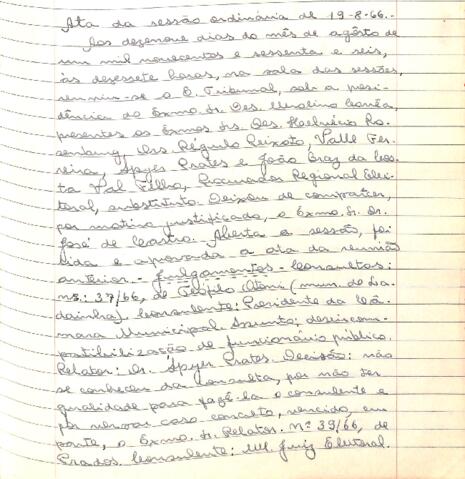 Ata da sessão ordinária de 19-8-66.-
Aos dezenove dias do mês de agôsto de
um mil novecentos e sessenta e seis,
às dezessete horas, na sala das sessões,
reuniu-se o E. Tribunal, sob a presi-
dência do Exmo. Sr. Des. Merolino Corrêa,
presentes os Exmos. Srs. Des. Helvécio Ro-
senburg, Drs. Régulo Peixoto, Valle Fer-
reira, Spyer Prates e João Braz da Cos-
ta Val Filho, Procurador Regional Elei-
toral, substituto. Deixou de comparecer,
por motivo justificado, o Exmo. Sr. Dr.
José de Castro. Aberta a sessão, foi
lida e aprovada a ata da reunião
anterior.- Julgamentos - Consultas:
ns.: 37/66, de Teófilo Otoni (mun. de La-
dainha). Consulente: Presidente da Câ-
mara Municipal. Assunto: desincom-
patibilização de funcionário público.
Relator: Dr. Spyer Prates. Decisão: não
se conheceu da consulta, por não ter
qualidade para fazê-la o consulente e
por versar caso concreto, vencido, em
parte, o Exmo. Sr. Relator. Nº 39/66, de
Prados. Consulente: MM. Juiz Eleitoral.